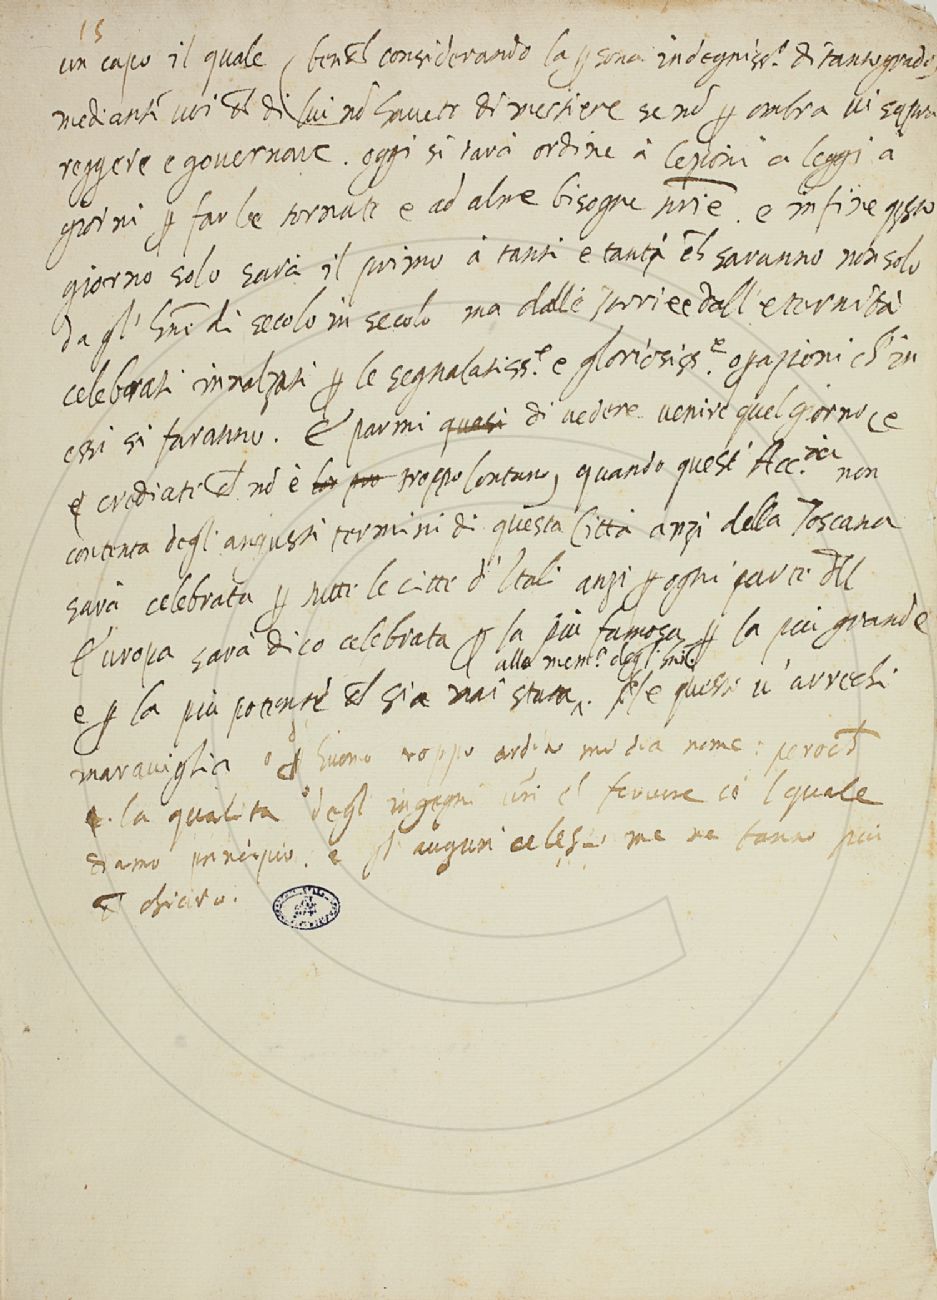 15
un capo il quale (benchè considerando la psona indegniss.ª di tanto grado)
mediante voi chè di lui nō havete di mestiere se nō p ombra vi saprà
reggere e governare. oggi si darà ordine à lezioni a leggi a
giorni p far le tornate e ad altre bisogne
giorno solo sarà il primo à tanti e tanti chē saranno non solo
da gl' di secolo in secolo ma dalle e dall'eternità
celebrati innalzati p le segnalatiss.e e gloriosiss.e opazioni ch' in
essi si faranno. E parmi quasi di vedere venire quel giorno (e
crediate chē nō è troppo lontano) quando quest' Acc.mia non
contenta degl'angusti termini di questa Città anzi della Toscana
sarà celebrata p tutte le città d'Itali anzi p ogni parte dell
Europa sarà dico celebrata p la più famosa p la più grande
alla mem.ª degl'
e p la più potente chē sia mai stata. Nè questo v' arrechi
maraviglia huomo troppo ardito mi dia nome: perochē
la qualità degl' ingegni vri e' fervore cō 'l quale
diamo principio. e gl' auguri celesti me ne fanno più
chē chiaro.